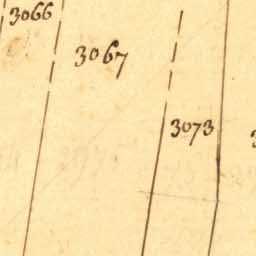 3066
3067
3073